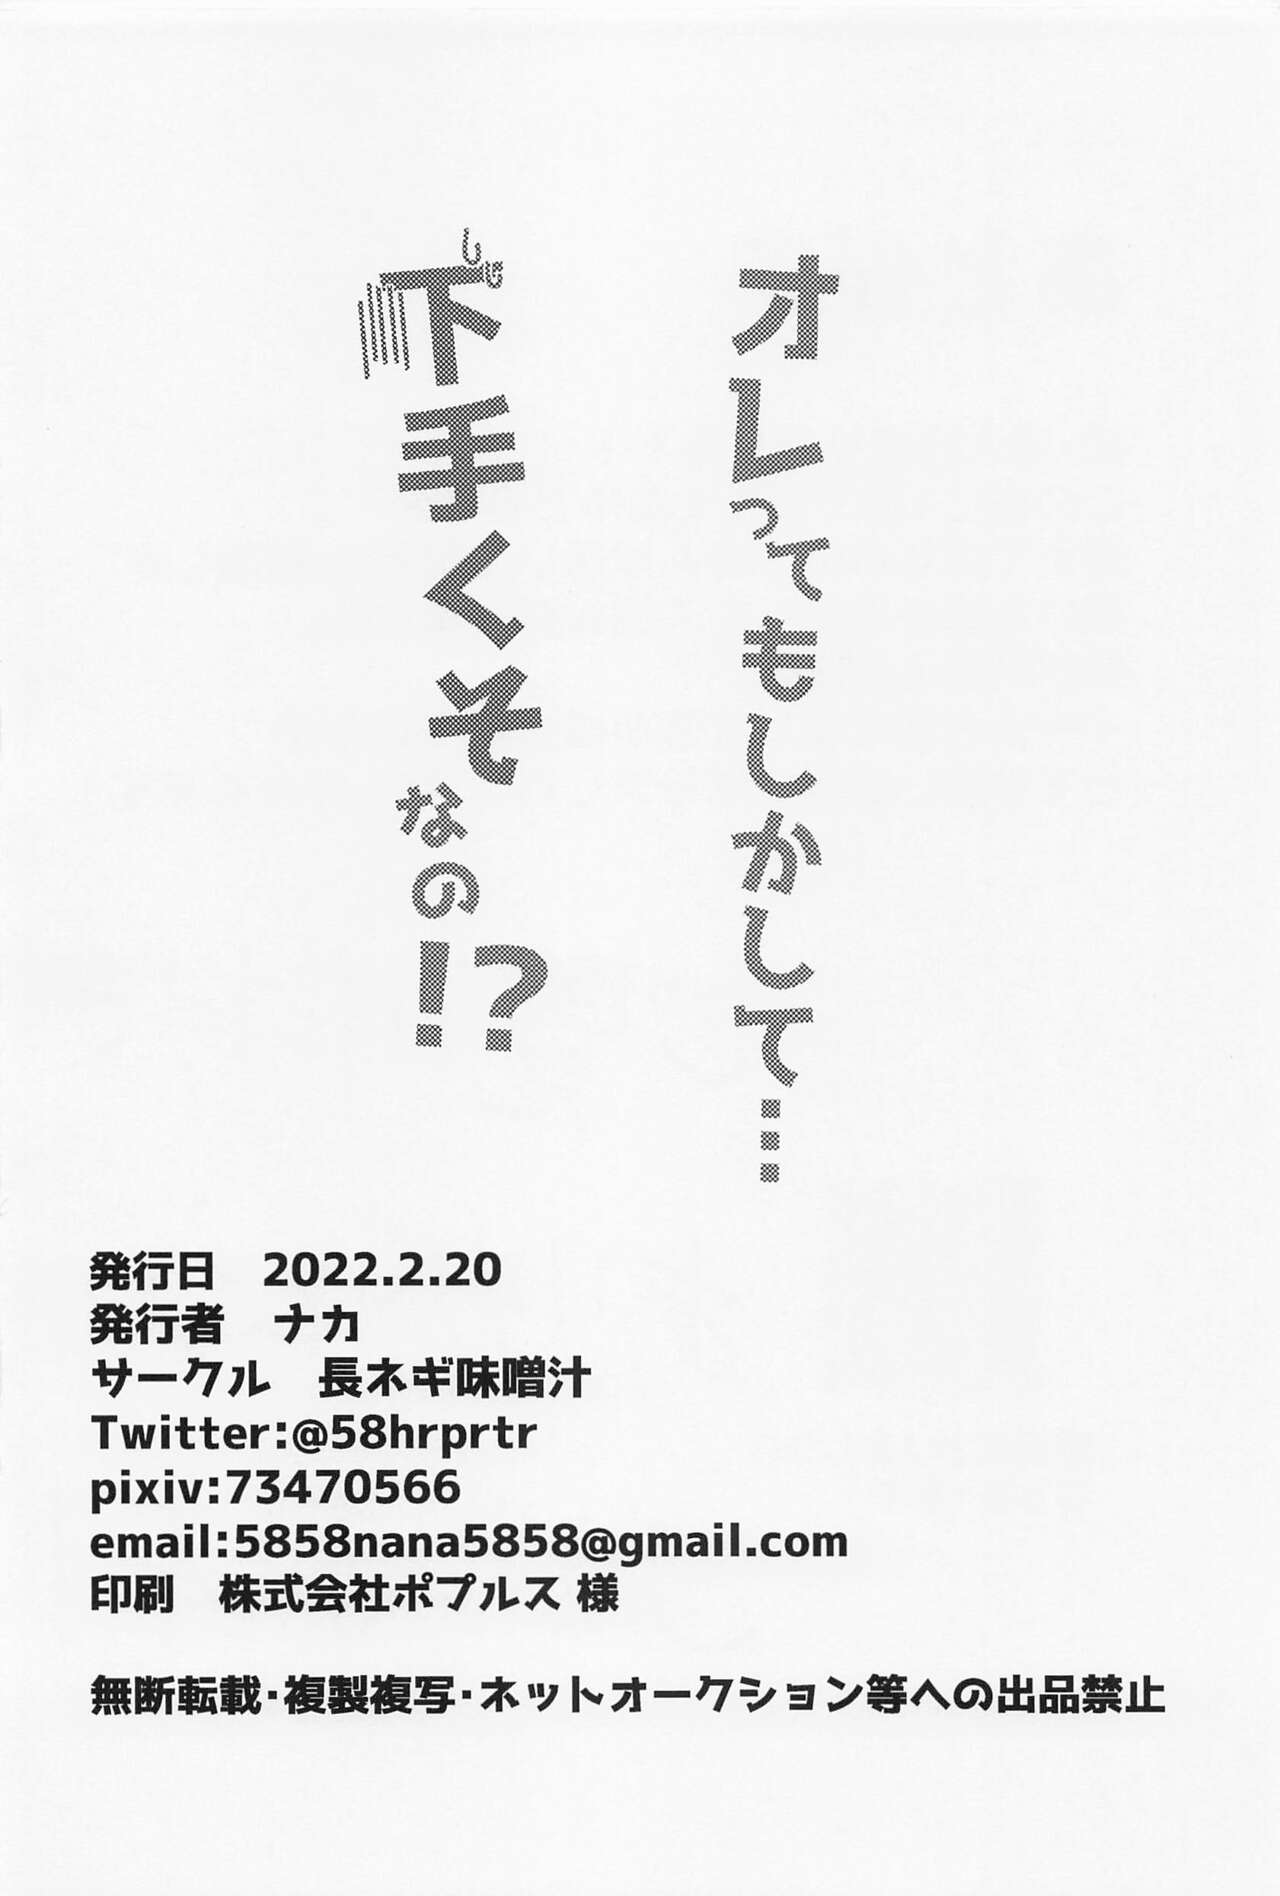 オレってもしかして…
下手くそなの!?
発行日　2022.2.20
発行者　ナカ
サークル　長ネギ味噌汁
Twitter:@58hrprtr
pixiv:73470566
email:5858nana5858@gmail.com
印刷　株式会社ポプルス 様
無断転載・複製複写・ネットオークション等への出品禁止